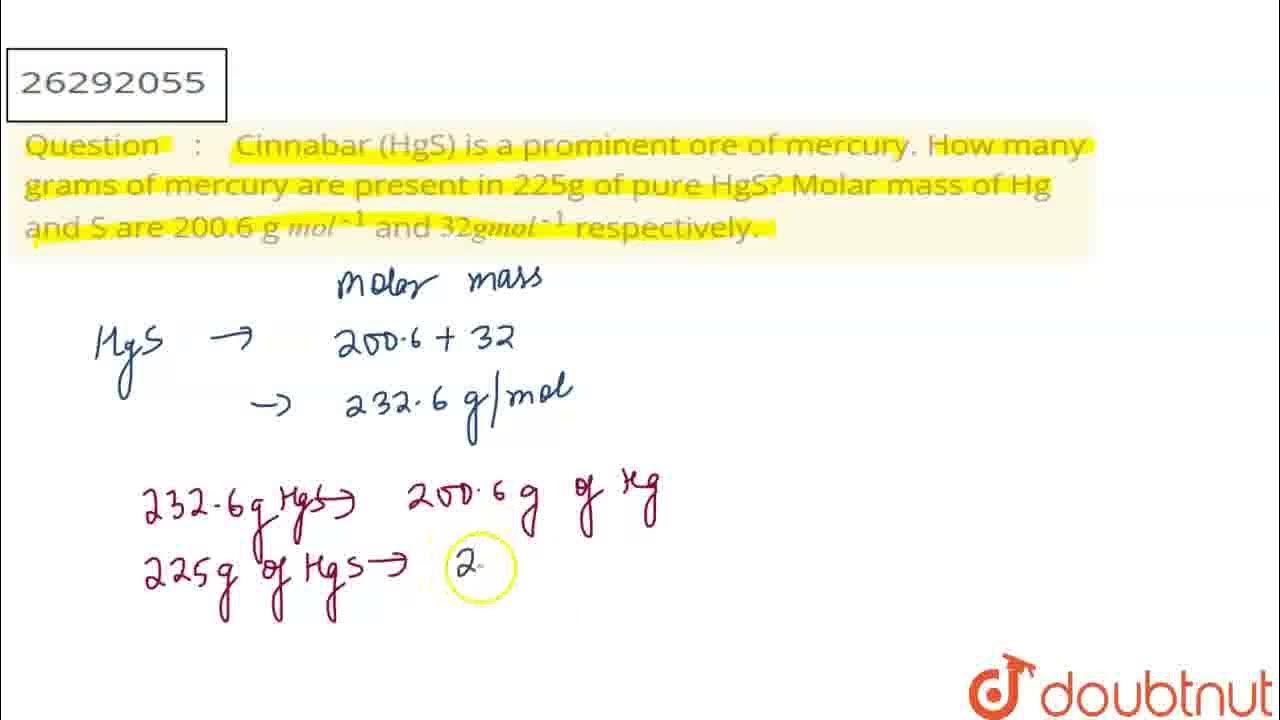 26292055
Question : Cinnabar (HgS) is a prominent ore of mercury. How many
grams of mercury are present in 225g of pure HgS? Molar mass of Hg
and S are 200.6 g mol⁻¹ and 32gmol⁻¹ respectively.
molar mass
HgS → 200.6 + 32
→ 232.6 g/mol
232.6g HgS → 200.6 g of Hg
225g of HgS → 2
doubtnut